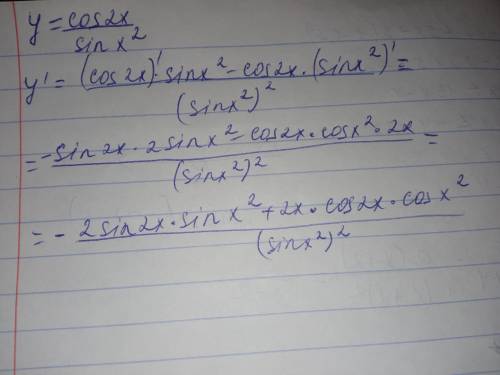 y = cos2x / sin x²
y' = (cos2x)' · sinx² - cos2x · (sinx²)' / (sinx²)² =
= -sin2x · 2sinx² - cos2x · cosx² · 2x / (sinx²)² =
= - 2sin2x · sin x² + 2x · cos2x · cos x² / (sinx²)²